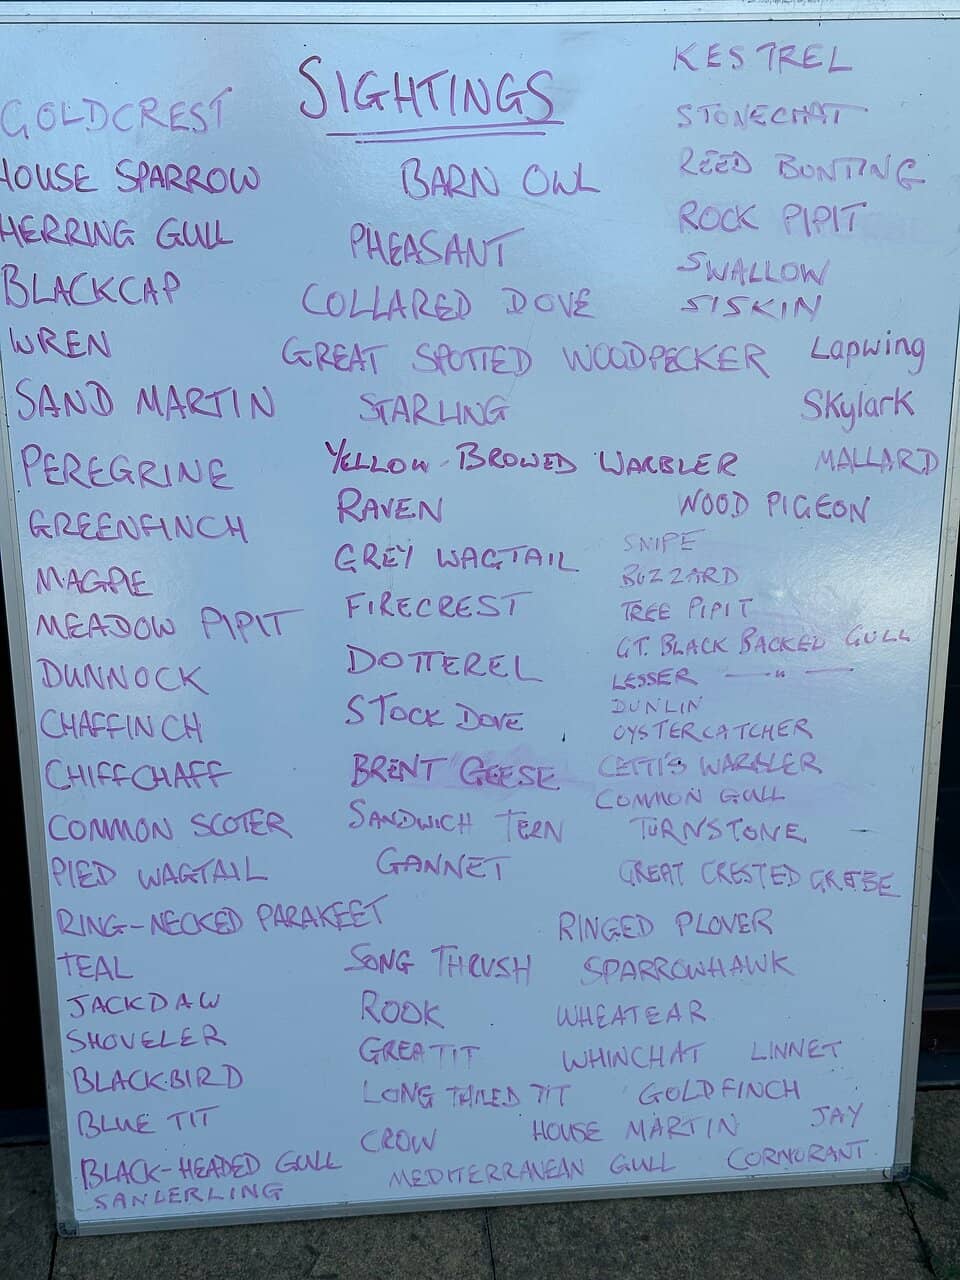 SIGHTINGS
GOLDCREST
HOUSE SPARROW
HERRING GULL
BLACKCAP
WREN
SAND MARTIN
PEREGRINE
GREENFINCH
MAGPIE
MEADOW PIPIT
DUNNOCK
CHAFFINCH
CHIFFCHAFF
COMMON SCOTER
PIED WAGTAIL
RING-NECKED PARAKEET
TEAL
JACKDAW
SHOVELER
BLACKBIRD
BLUE TIT
BLACK-HEADED GULL
SANDERLING
BARN OWL
PHEASANT
COLLARED DOVE
GREAT SPOTTED WOODPECKER
STARLING
YELLOW-BROWED WARBLER
RAVEN
GREY WAGTAIL
FIRECREST
DOTTEREL
STOCK DOVE
BRENT GEESE
SANDWICH TERN
GANNET
SONG THRUSH
ROOK
GREAT TIT
LONG TAILED TIT
CROW
MEDITERRANEAN GULL
KESTREL
STONECHAT
REED BUNTING
ROCK PIPIT
SWALLOW
SISKIN
Lapwing
Skylark
MALLARD
WOOD PIGEON
SNIPE
BUZZARD
TREE PIPIT
GT. BLACK BACKED GULL
LESSER — " —
DUNLIN
OYSTERCATCHER
CETTI'S WARBLER
COMMON GULL
TURNSTONE
GREAT CRESTED GREBE
RINGED PLOVER
SPARROWHAWK
WHEATEAR
WHINCHAT LINNET
GOLDFINCH
HOUSE MARTIN JAY
CORMORANT